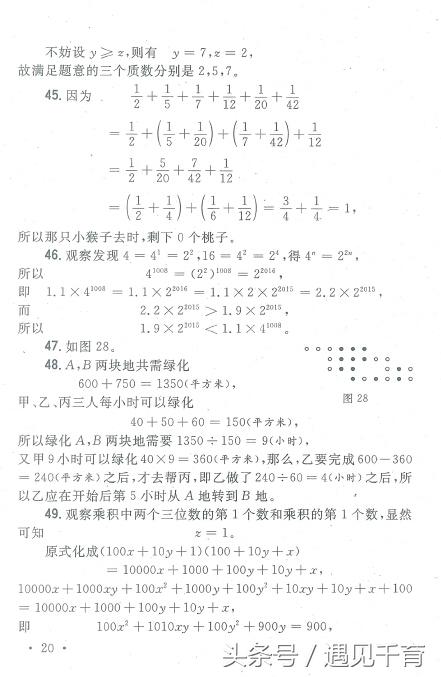 不妨设 y ⩾ z,则有 y = 7,z = 2,
故满足题意的三个质数分别是 2,5,7。
45. 因为 1/2 + 1/5 + 1/7 + 1/12 + 1/20 + 1/42
= 1/2 + (1/5 + 1/20) + (1/7 + 1/42) + 1/12
= 1/2 + 5/20 + 7/42 + 1/12
= (1/2 + 1/4) + (1/6 + 1/12) = 3/4 + 1/4 = 1,
所以那只小猴子去时,剩下 0 个桃子。
46. 观察发现 4 = 4¹ = 2², 16 = 4² = 2⁴, 得 4ⁿ = 2²ⁿ,
所以 4¹⁰⁰⁸ = (2²)¹⁰⁰⁸ = 2²⁰¹⁶,
即 1.1 × 4¹⁰⁰⁸ = 1.1 × 2²⁰¹⁶ = 1.1 × 2 × 2²⁰¹⁵ = 2.2 × 2²⁰¹⁵,
而 2.2 × 2²⁰¹⁵ > 1.9 × 2²⁰¹⁵,
所以 1.9 × 2²⁰¹⁵ < 1.1 × 4¹⁰⁰⁸。
47. 如图 28。
48. A,B 两块地共需绿化
600 + 750 = 1350(平方米),
图 28
甲、乙、丙三人每小时可以绿化
40 + 50 + 60 = 150(平方米),
所以绿化 A,B 两块地需要 1350 ÷ 150 = 9(小时),
又甲 9 小时可以绿化 40 × 9 = 360(平方米),那么,乙要完成 600 − 360
= 240(平方米)之后,才去帮丙,即乙做了 240 ÷ 60 = 4(小时)之后,所
以乙应在开始后第 5 小时从 A 地转到 B 地。
49. 观察乘积中两个三位数的第 1 个数和乘积的第 1 个数,显然
可知 z = 1。
原式化成(100x + 10y + 1)(100 + 10y + x)
= 10000x + 1000 + 100y + 10y + x,
10000x + 1000xy + 100x² + 1000y + 100y² + 10xy + 10y + x + 100
= 10000x + 1000 + 100y + 10y + x,
即 100x² + 1010xy + 100y² + 900y = 900,
· 20 ·
头条号 / 遇见千育